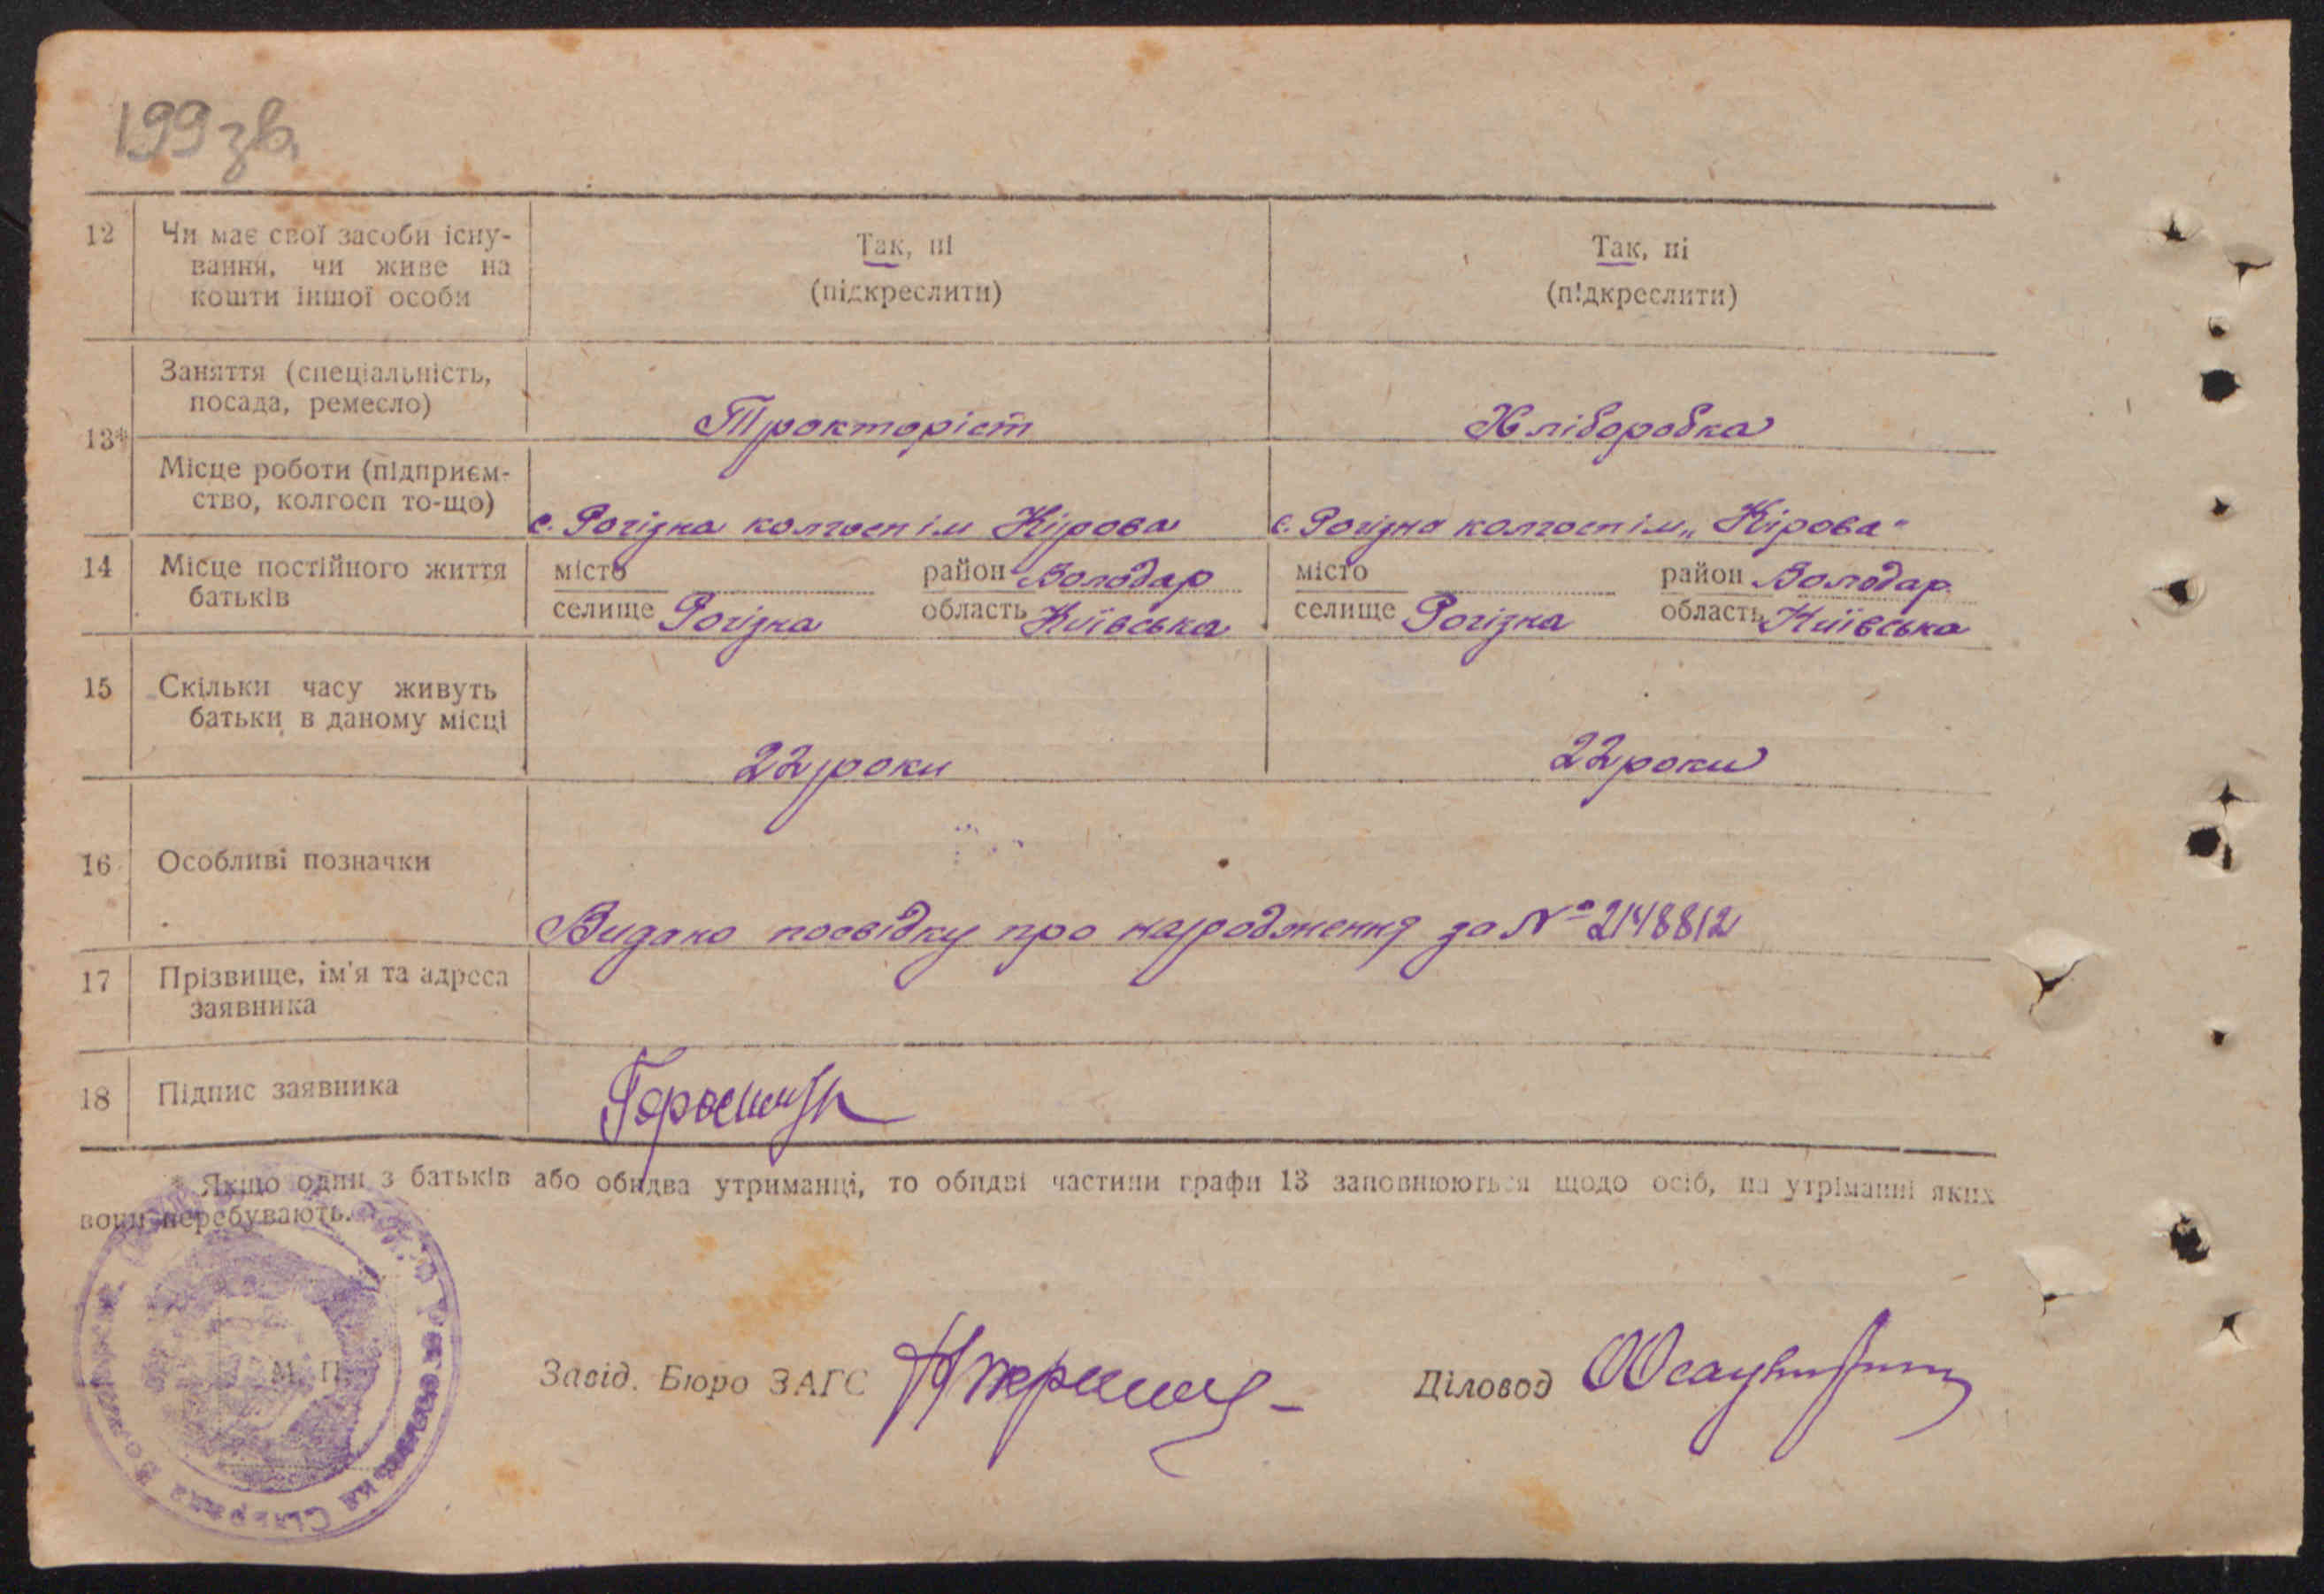 199 зв.
12 Чи має свої засоби існу-
вання, чи живе на
кошти іншої особи
Так, ні
(підкреслити)
Так, ні
(підкреслити)
13*
Заняття (спеціальність,
посада, ремесло)
Тракторіст
Хліборобка
Місце роботи (підприєм-
ство, колгосп то-що)
с. Рогізна колгосп ім Кірова
с. Рогізна колгосп ім „Кірова"
14 Місце постійного життя
батьків
місто район Володар
селище Рогізна область Київська
місто район Володар
селище Рогізна область Київська
15 Скільки часу живуть
батьки в даному місці
22 роки
22 роки
16 Особливі позначки
Видано посвідку про народження за № 2148812
17 Прізвище, ім'я та адреса
заявника
18 Підпис заявника
* Якщо один з батьків або обидва утриманці, то обидві частини графи 13 заповнюються щодо осіб, на утріманні яких
вони перебувають.
М. П.
Завід. Бюро ЗАГС
Діловод